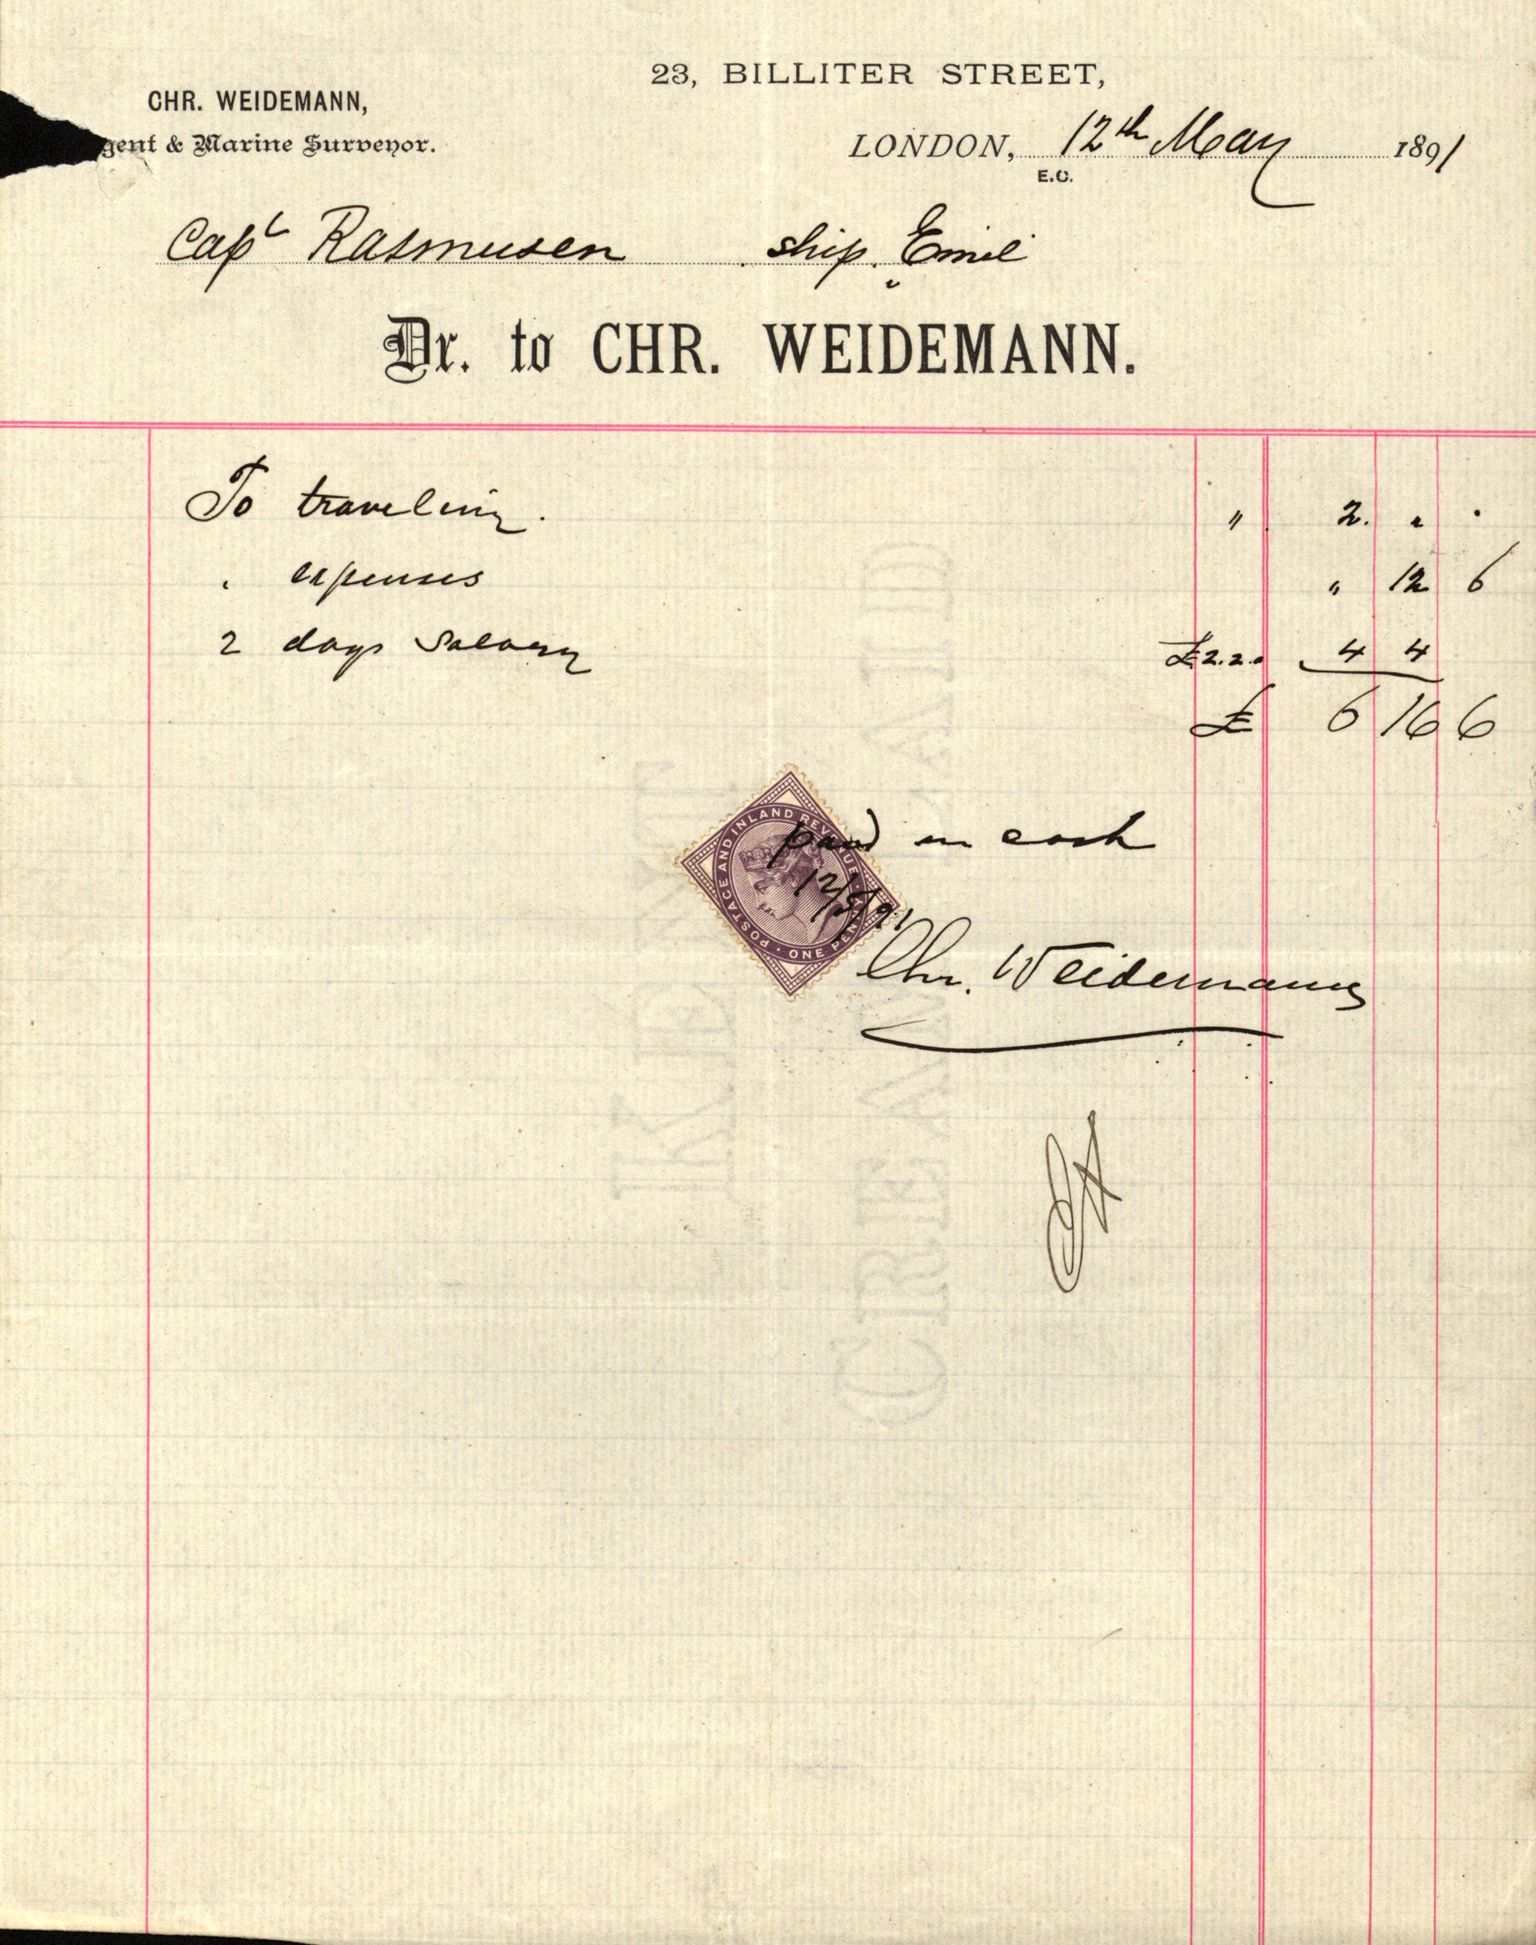 23, BILLITER STREET,
CHR. WEIDEMANN,
gent & Marine Surveyor.
LONDON, 12th May 1891
E.C.
Capt Rasmusen ship Emil
Dr. to CHR. WEIDEMANN.
To traveling. " 2. " .
" expenses " 12 6
2 days Salary £2.2.. 4 4
£ 6 16 6
POSTAGE AND INLAND REVENUE · ONE PENNY ·
paid in cash
12/5/91
Chr. Weidemann
KENT
CREAM LAID